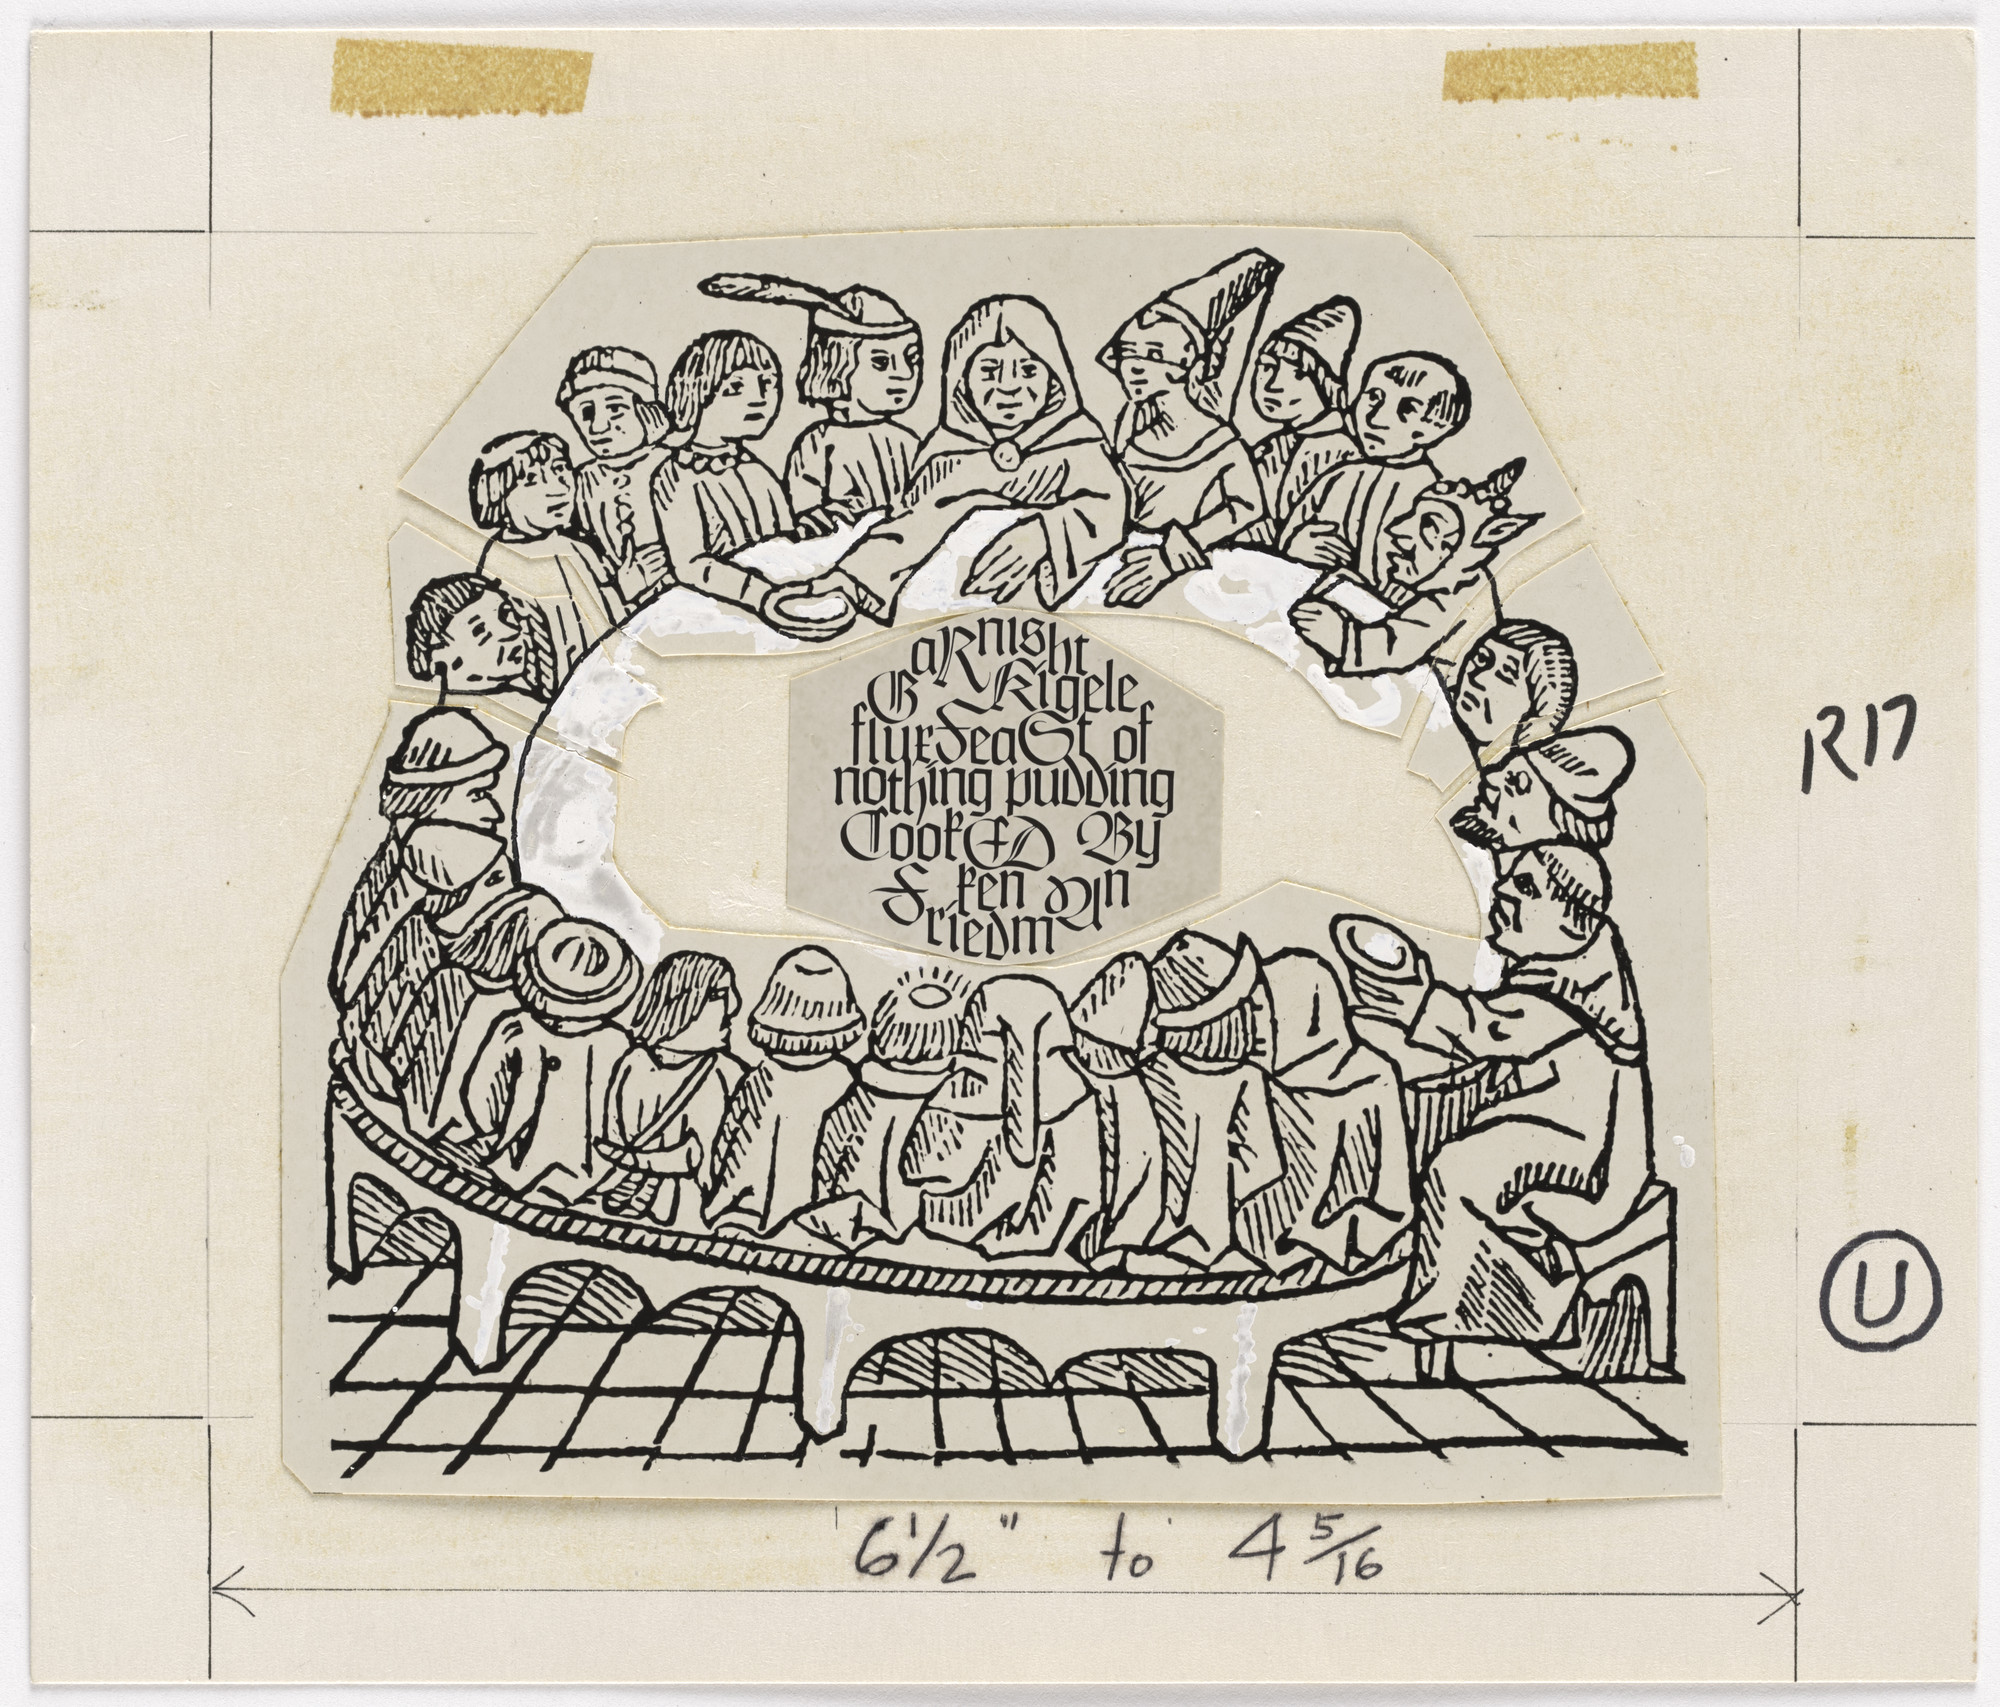 GaRnisht
Kigele
fluxfeaSt of
nothing pudding
CookED By
ken
FriedmAn
R17
U
6 1/2" to 4 5/16